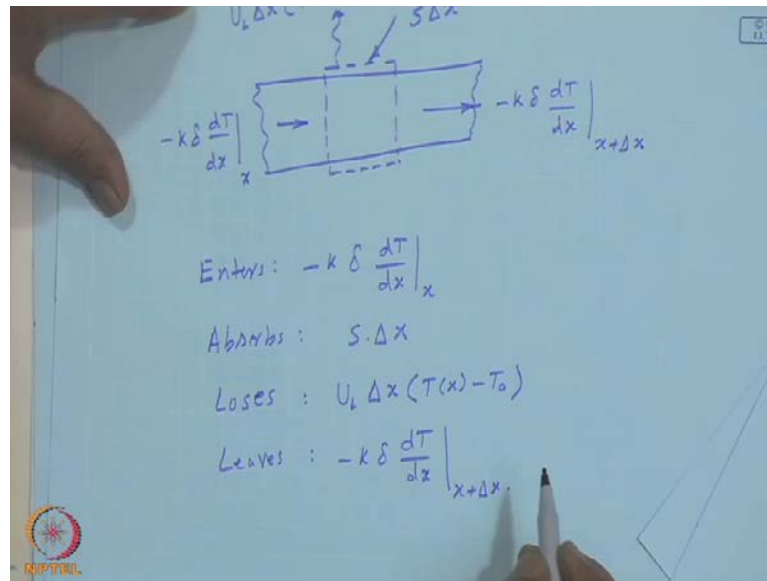 U_L Δx(
SΔx
-kδ dT/dx |_x
-kδ dT/dx |_{x+Δx}
Enters: -kδ dT/dx |_x
Absorbs: S.Δx
Loses: U_L Δx (T(x) - T_a)
Leaves: -kδ dT/dx |_{x+Δx}.
NPTEL